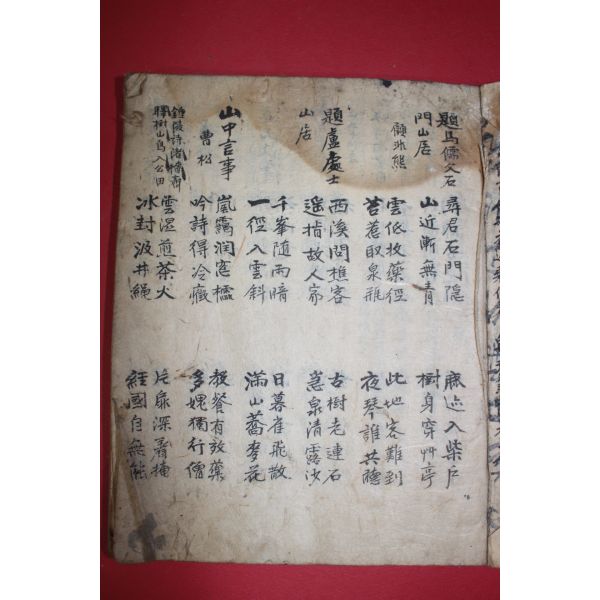 題馬儒文石
門山居
顧非熊
尋君石門隱
山近漸無青
鹿迹入柴戶
樹身穿艸亭
雲低收藥徑
苔惹取泉瓶
此地客難到
夜琴誰共聽
題盧處士
山居
西溪問樵客
遥指故人家
古樹老連石
急泉清露沙
千峯隨雨暗
一徑入雲斜
日暮雀飛散
滿山蕎麥花
山中言事
曹松
嵐靄潤窓櫺
吟詩得冷癥
教餐有效藥
多媿獨行僧
雲湿煎茶火
冰封汲井繩
片扉深著掩
経國自無能
鍾陵詩渚檣齊
驛樹山鳥入公田